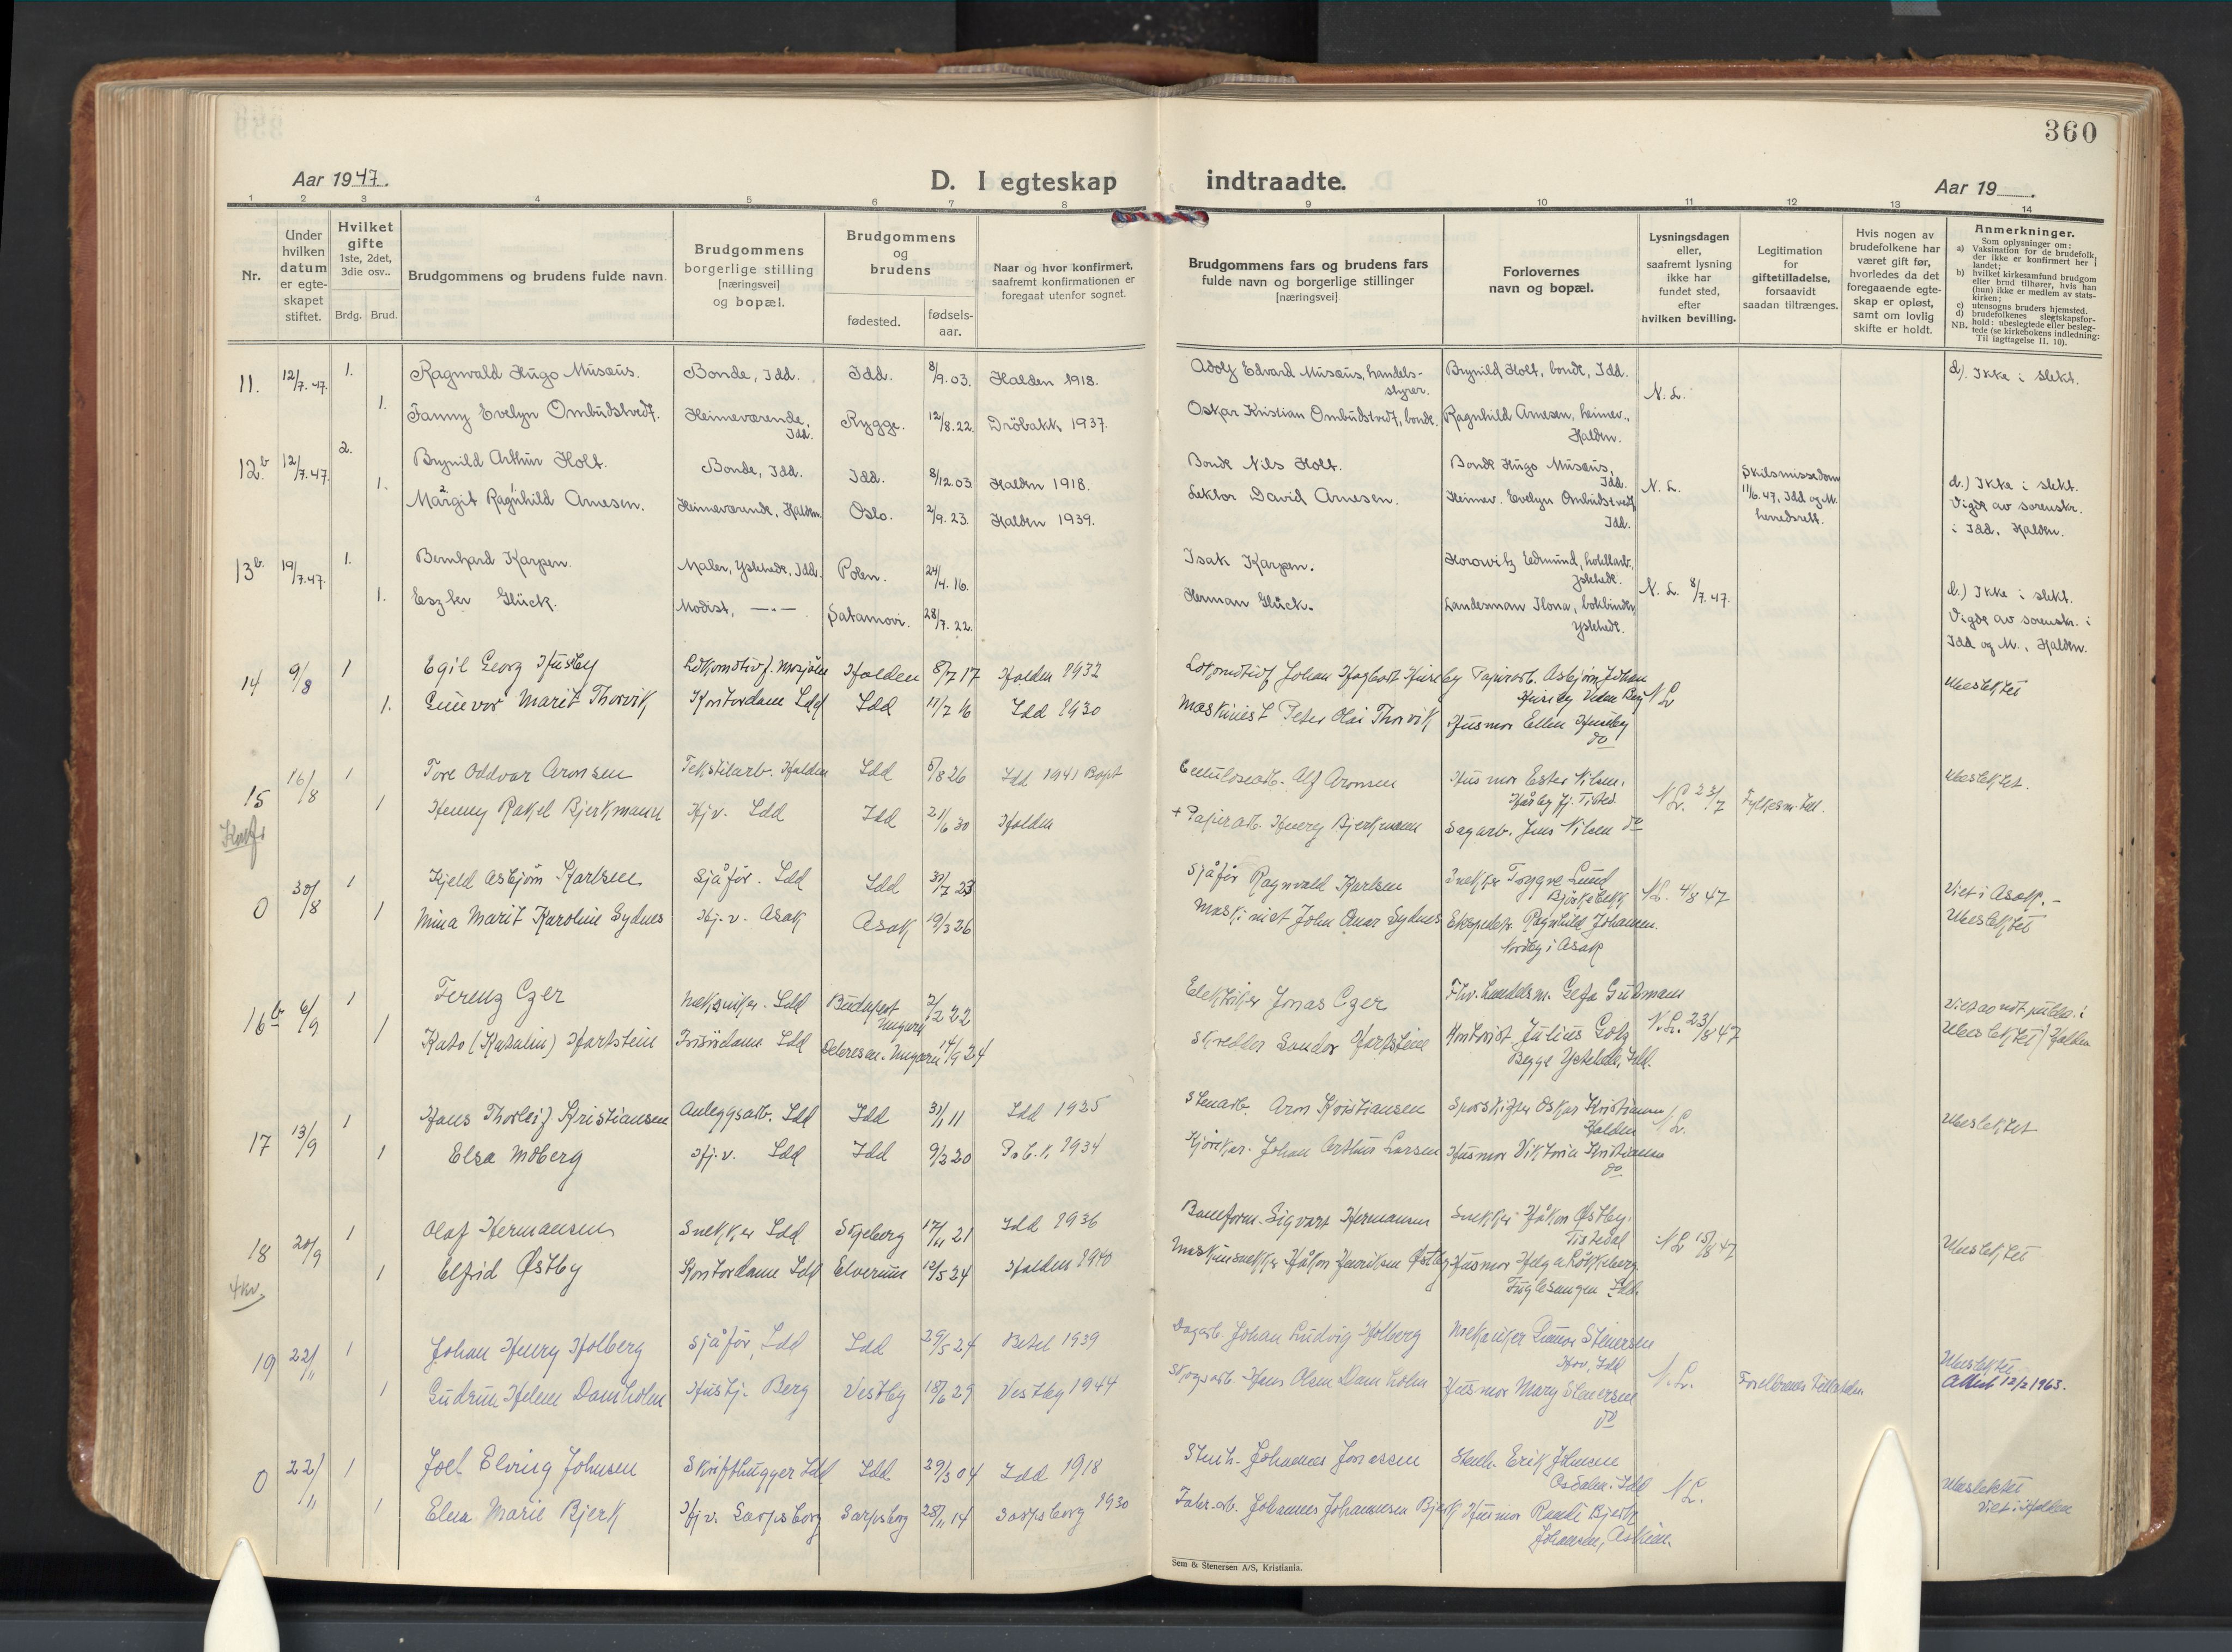 360
Aar 1947.
D. I egteskap indtraadte.
Aar 19
1 2 3 4 5 6 7 8 9 10 11 12 13 14
Nr.
Under hvilken datum er egte-skapet stiftet.
Hvilket gifte 1ste, 2det, 3die osv..
Brdg. Brud.
Brudgommens og brudens fulde navn.
Brudgommens borgerlige stilling [næringsvei] og bopæl.
Brudgommens og brudens
fødested.
fødsels-aar.
Naar og hvor konfirmert, saafremt konfirmationen er foregaat utenfor sognet.
Brudgommens fars og brudens fars fulde navn og borgerlige stillinger [næringsvei]
Forlovernes navn og bopæl.
Lysningsdagen eller, saafremt lysning ikke har fundet sted, efter hvilken bevilling.
Legitimation for giftetilladelse, forsaavidt saadan tiltrænges.
Hvis nogen av brudefolkene har været gift før, hvorledes da det foregaaende egte-skap er opløst, samt om lovlig skifte er holdt.
Anmerkninger.
Som oplysninger om:
a) Vaksination for de brudefolk, der ikke er konfirmert her i landet;
b) hvilket kirkesamfund brudgom eller brud tilhører, hvis han (hun) ikke er medlem av stats-kirken;
c) utensogns bruders hjemsted.
d) brudefolkenes slegtskapsfor-hold: ubeslegtede eller besleg-tede (se kirkebokens indledning:
NB. Til iagttagelse II, 10).
11. 12/7.47. 1. Ragnvald Hugo Musæus. Bonde, Idd. Idd. 8/9.03. Halden 1918. Adolf Edvard Musæus, handels-styrer. Brynild Holt, bonde, Idd. N.L. d). Ikke i slekt.
1. Fanny Evelyn Ombudstvedt. Heimeværende, Idd. Rygge. 12/8.22. Dröbakk 1937. Oskar Kristian Ombudstvedt, bonde. Ragnhild Arnesen, heimev., Halden.
12b. 12/7.47. 2. Brynild Arthur Holt. Bonde, Idd. Idd. 8/12.03 Halden 1918. Bonde Nils Holt. Bonde Hugo Musæus, Idd. N.L. Skilsmissedom 11/6.47, Idd og M. herredsrett. d.) Ikke i slekt.
1. Margit Ragnhild Arnesen. Heimeværende, Halden. Oslo. 2/9.23. Halden 1939. Lektor David Arnesen. Heimev. Evelyn Ombudstvedt, Idd. Vigde av sorenskr. i Idd, Halden.
13b. 19/7.47. 1. Bernhard Karpen. Maler, Ystehede, Idd. Polen. 24/4.16. Isak Karpen. Horowitz Edmund, hotellarb. Ystehede. N.L. 8/7.47. d.) Ikke i slekt.
1. Eszter Glück. Modist, —"— Satamovi. 28/7.22. Herman Glück. Landesman Ilona, bokbinder, Ystehede. Vigde av sorenskr. i Idd og M., Halden.
14 9/8 1 Egil Georg Husby Lokomotivf. Mosjøen Halden 8/7 17 Halden 1932 Lokomotivf Johan Hagbart Husby Papirarb. Asbjørn Johan Husby N L Ubeslektet
1. Gunvor Marit Thorvik Kontordame Idd Idd 11/7 16 Idd 1930 Maskinist Peter Olai Thorvik Husmor Ellen Husby do
15 16/8 1 Tore Oddvar Aronsen Tekstilarb. Halden Idd 5/8 26 Idd 1941 Bapt Cellulosearb. Alf Aronsen Husmor Ester Nilsen, N.L. 23/7 Ubeslektet.
1 Henny Rakel Bjerkmann Hjv. Idd Idd 21/6 30 Halden + Papirarb. Henry Bjerkmann Sagarb. Jens Nilsen do
0 30/8 1 Kjeld Asbjørn Karlsen Sjåfør. Idd Idd 31/7 23 Sjåfør Ragnvald Karlsen Snekker Trygve Lund Bjørkebekk N.L. 4/8 47 Viet i Asak.-
1 Mina Marit Karoline Sydnes Hj.v. Asak Asak 19/3 26 Maskinist John Einar Sydnes Ekspeditr. Ragnhild Johansen. Nordby i Asak Ubeslektet
16b 6/9 1 Ferenz Czer Mekaniker. Idd Budapest Ungarn 2/2 22 Elektriker Jonas Czer Fhv. Geza Gutmann N.L. 23/8 47
1 Kato (Katalin) Hartstein Frisørdame Idd Debresen. Ungarn 14/9 24 Skredder Sandor Hartstein Julius Golz Begge Ystehede, Idd. Ubeslektet Halden
17 13/9 1 Hans Thorleif Kristiansen Anleggsarb. Idd Idd 31/1 11 Idd 1925 Stenarb. Arn Kristiansen Sporskifter Oskar Kristiansen Halden N.L. Ubeslektet
1 Elsa Moberg Hj.v. Idd Idd 9/2 20 1934 Kjørekar. Johan Arthur Larsen Husmor Viktoria Kristiansen do
18 20/9 1 Olaf Hermansen Snekker Idd Skjeberg 17/11 21 Idd 1936 Baneform. Sigvart Hermansen Snekker Håkon Østby, Tistedal N L 15/8 47 Ubeslektet
4kv. 1 Elfrid Østby Kontordame Idd Elverum 12/5 24 Halden 1940 Maskinsnekker Håkon Henriksen Østby Husmor Helga Løkkeberg Fuglesangen Idd.
19 22/11 1 Johan Henry Holberg Sjåfør, Idd Idd 29/5 24 Betel 1939 Dagarb. Johan Ludvig Holberg Mekaniker Gunnar Stenersen Idd N.L. Ubeslektet
1 Gudrun Helene Damholm Hushj. Berg Vestby 18/6 29 Vestby 1944 Skogsarb. Hans Olsen Damholm Husmor Mary Stenersen do Foreldrenes tillatelse Attest 12/2 1963.
0 22/11 1 Joel Elving Johnsen Skrifthugger Idd Idd 29/3 04 Idd 1918 Stenh. Johannes Jonassen Stenh. Erik Johnsen Osdalen. Idd N L. Ubeslektet
1 Elna Marie Bjerk Hjv. Sarpsborg Sarpsborg 28/11 14 Sarpsborg 1930 Fabr.arb. Johannes Johannesen Bjerk Husmor Randi Bjerk Johansen, Askim. Viet i Halden
Sem & Stenersen A/S, Kristiania.